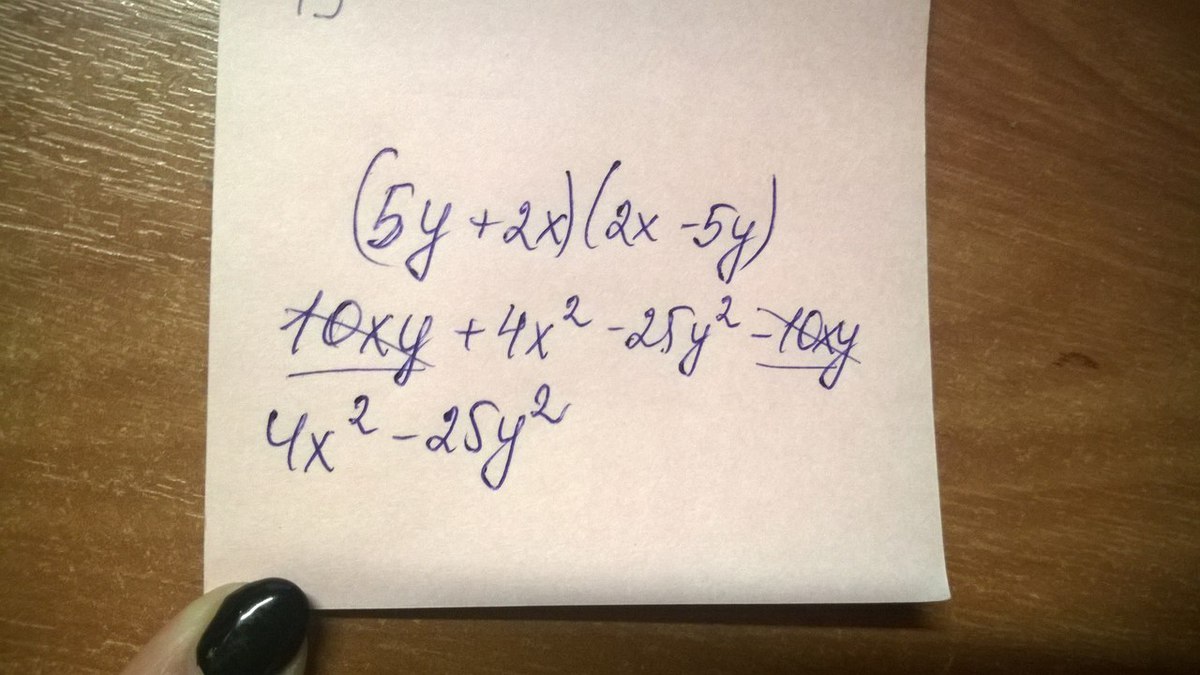 (5y +2x)(2x -5y)
10xy +4x² -25y² -10xy
4x² -25y²